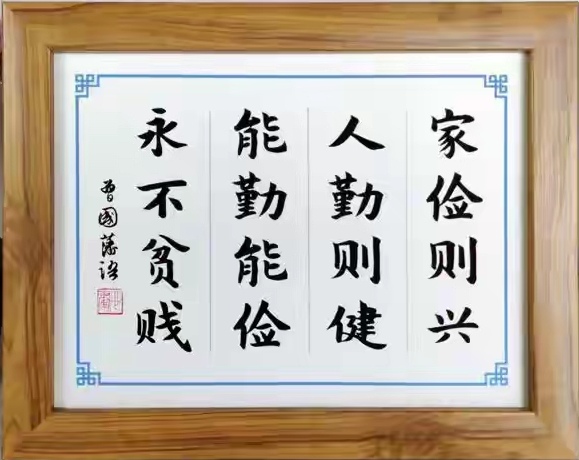 家俭则兴
人勤则健
能勤能俭
永不贫贱
曾國藩语